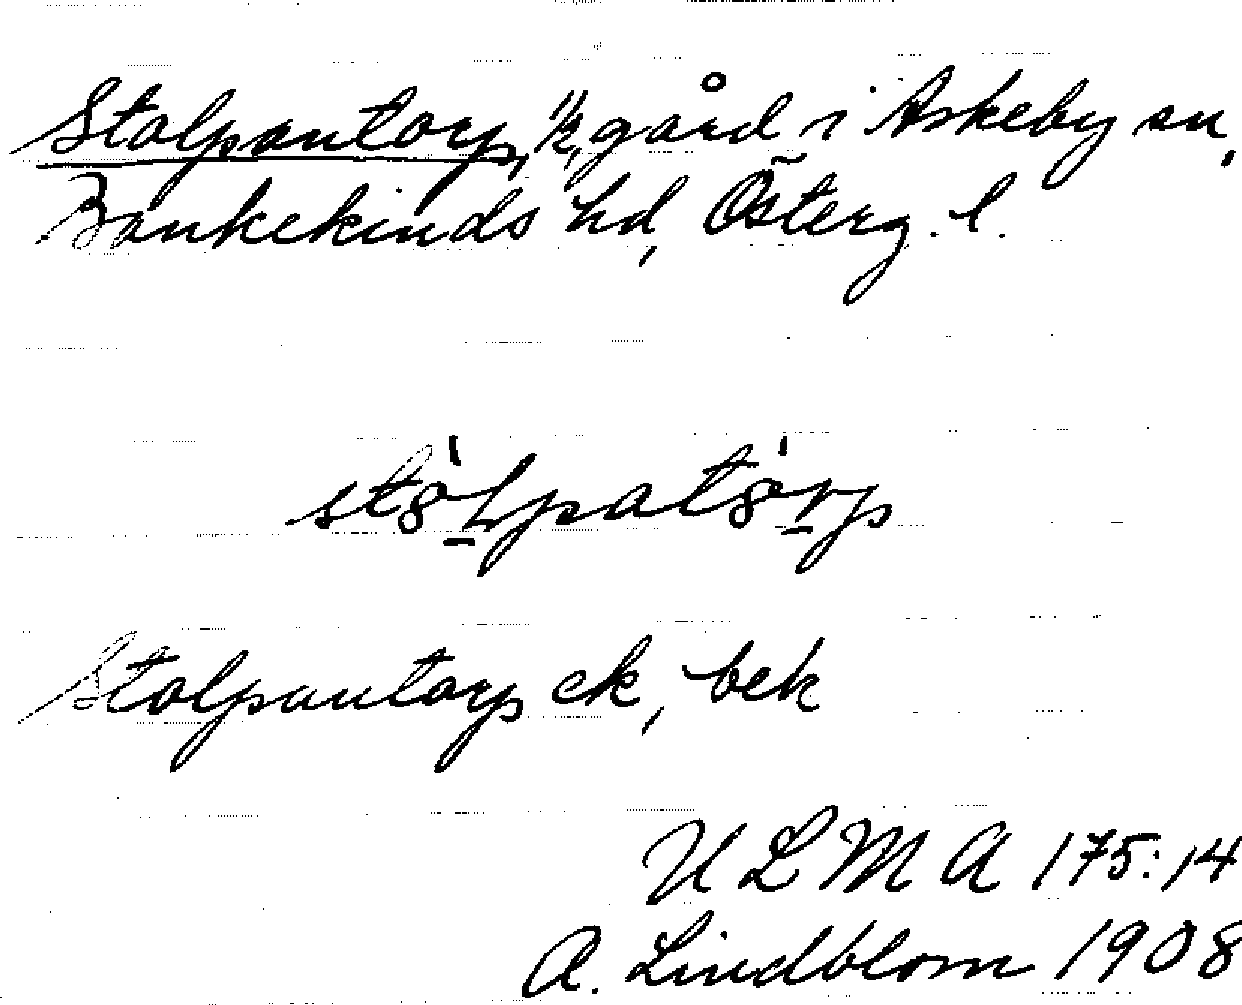 Stolpantorp, 1/2, gård i Askeby sn,
Bankekinds hd, Österg. l.
stȣ̀lpatȣ̀rp
Stolpantorp ek, bek
ULMA 175:14
A. Lindblom 1908